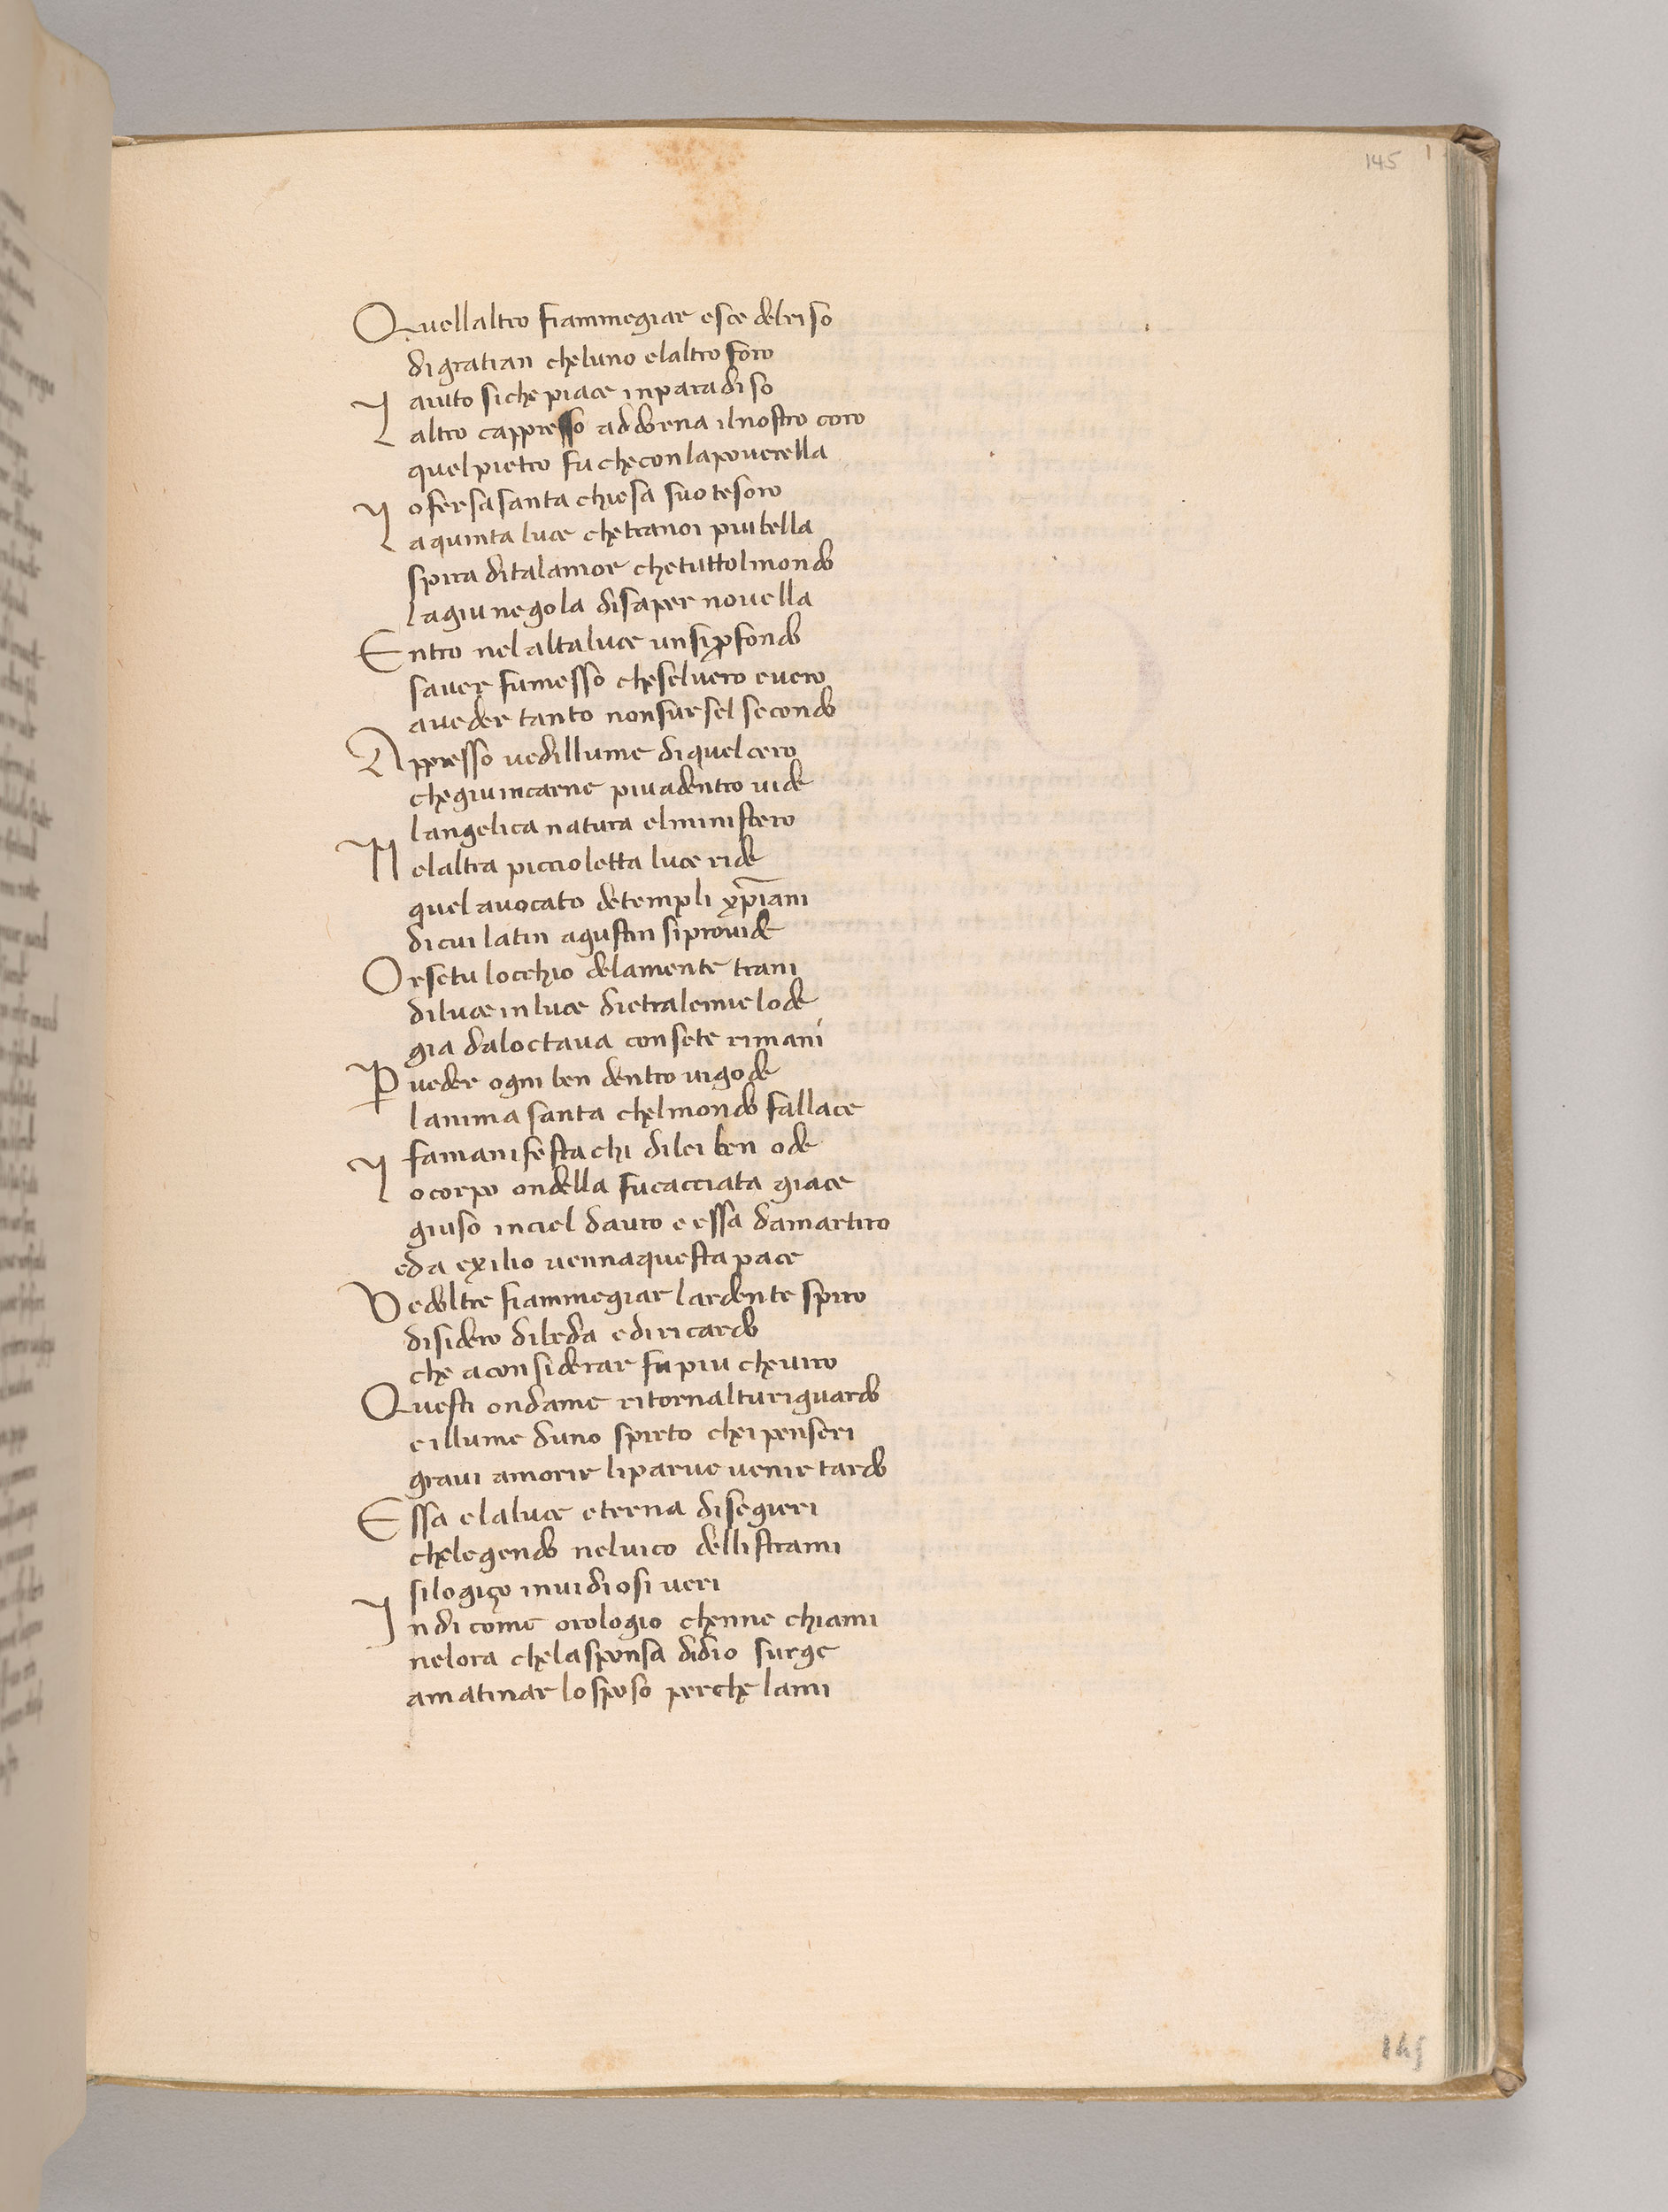 145
Quellaltro fiammegiar esce delriso
digratian cheluno elaltro foro
aiuto siche piace inparadiso
Laltro cappresso addorna ilnostro coro
quelpietro fu checonlapouerella
ofersasanta chiesa suotesoro
Laquinta luce chetranoi piubella
spira ditalamor chetuttolmondo
lagiunegola disaper nouella
Entro nelaltaluce unsipfondo
sauer fumesso cheseluero euero
aueder tanto nonsursel secondo
Appresso uedillume diquelcero
chegiuincarne piuadentro uide
langelica natura elministero
Nelaltra piccioletta luce ride
quel auocato detempli xpiani
dicui latin agustin siprouide
Orsetu locchio delamente trani
diluce inluce dietralemielode
gia daloctaua consete rimani
P ueder ogni ben dentro uigode
lanima santa chelmondo fallace
famanifesta chi dilei ben ode
Locorpo ondella fucacciata giace
giuso inciel dauro e essa damartiro
eda exilio uennaquesta pace
Vedoltre fiammegiar lardente spiro
disidero dibeda ediricardo
che aconsiderar fu piu cheuiro
Questi ondame ritornalturiguardo
eillume duno spirto chei penseri
graui amorir liparue uenir tardo
Essa elaluce eterna disegieri
chelegendo neluico dellistrami
silogiço inuidiosi ueri
Indi come orologio chenne chiami
nelora chelasponsa didio surge
amatinar losposo perche lami
145